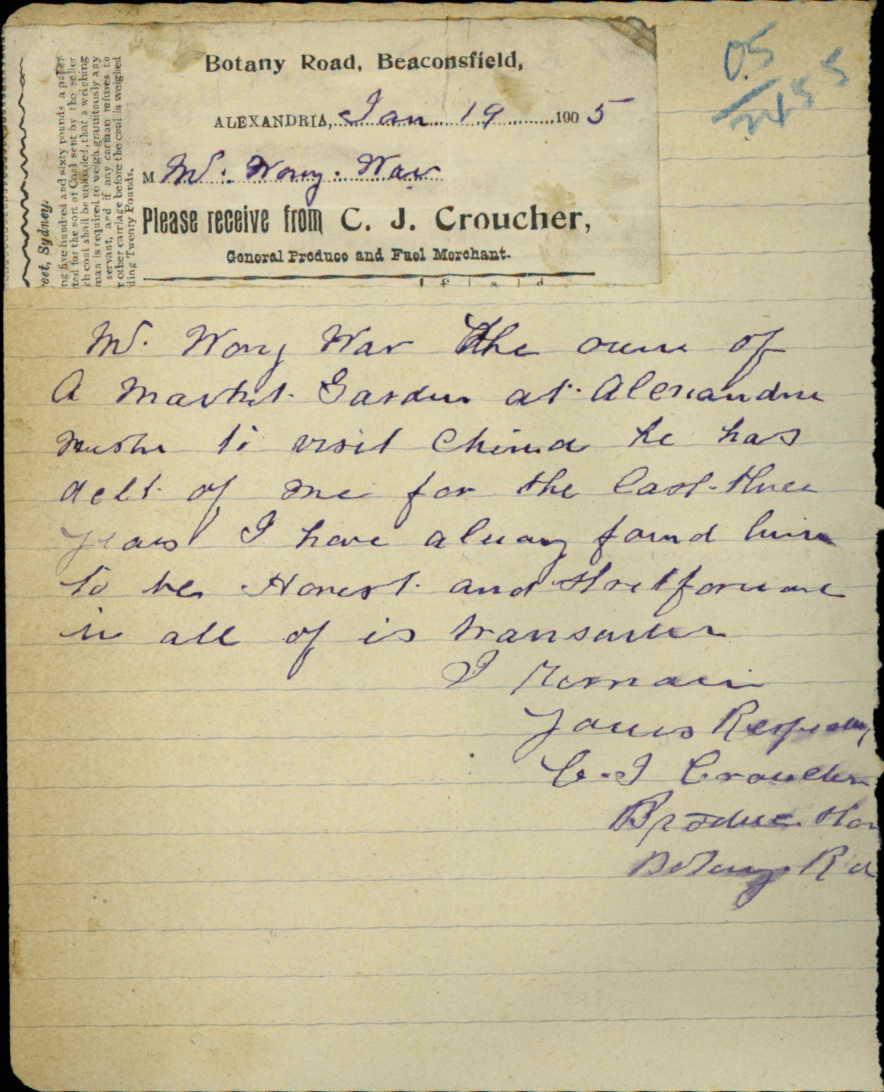 05/2455
Botany Road, Beaconsfield,
ALEXANDRIA, Jan 19 1905
M Mr. Wong. War
Please receive from C. J. Croucher,
General Produce and Fuel Merchant.
eet, Sydney.
ng five hundred and sixty pounds, a
ted for the sort of Coal sent by the seller
ch coal shall be unloaded, that a weighing
man is required to weigh gratuitously any
servant, and if any carman refuses to
r other carriage before the coal is weighed
ding Twenty Pounds.
Mr. Wong War the owne of
A Market Garden at Alexandria
to visit China he has
delt of me for the last three
years I have alway found him
to be Honest and stretforward
in all of is
I Remain
Yours
C. J Croucher
Produce
Botany Rd